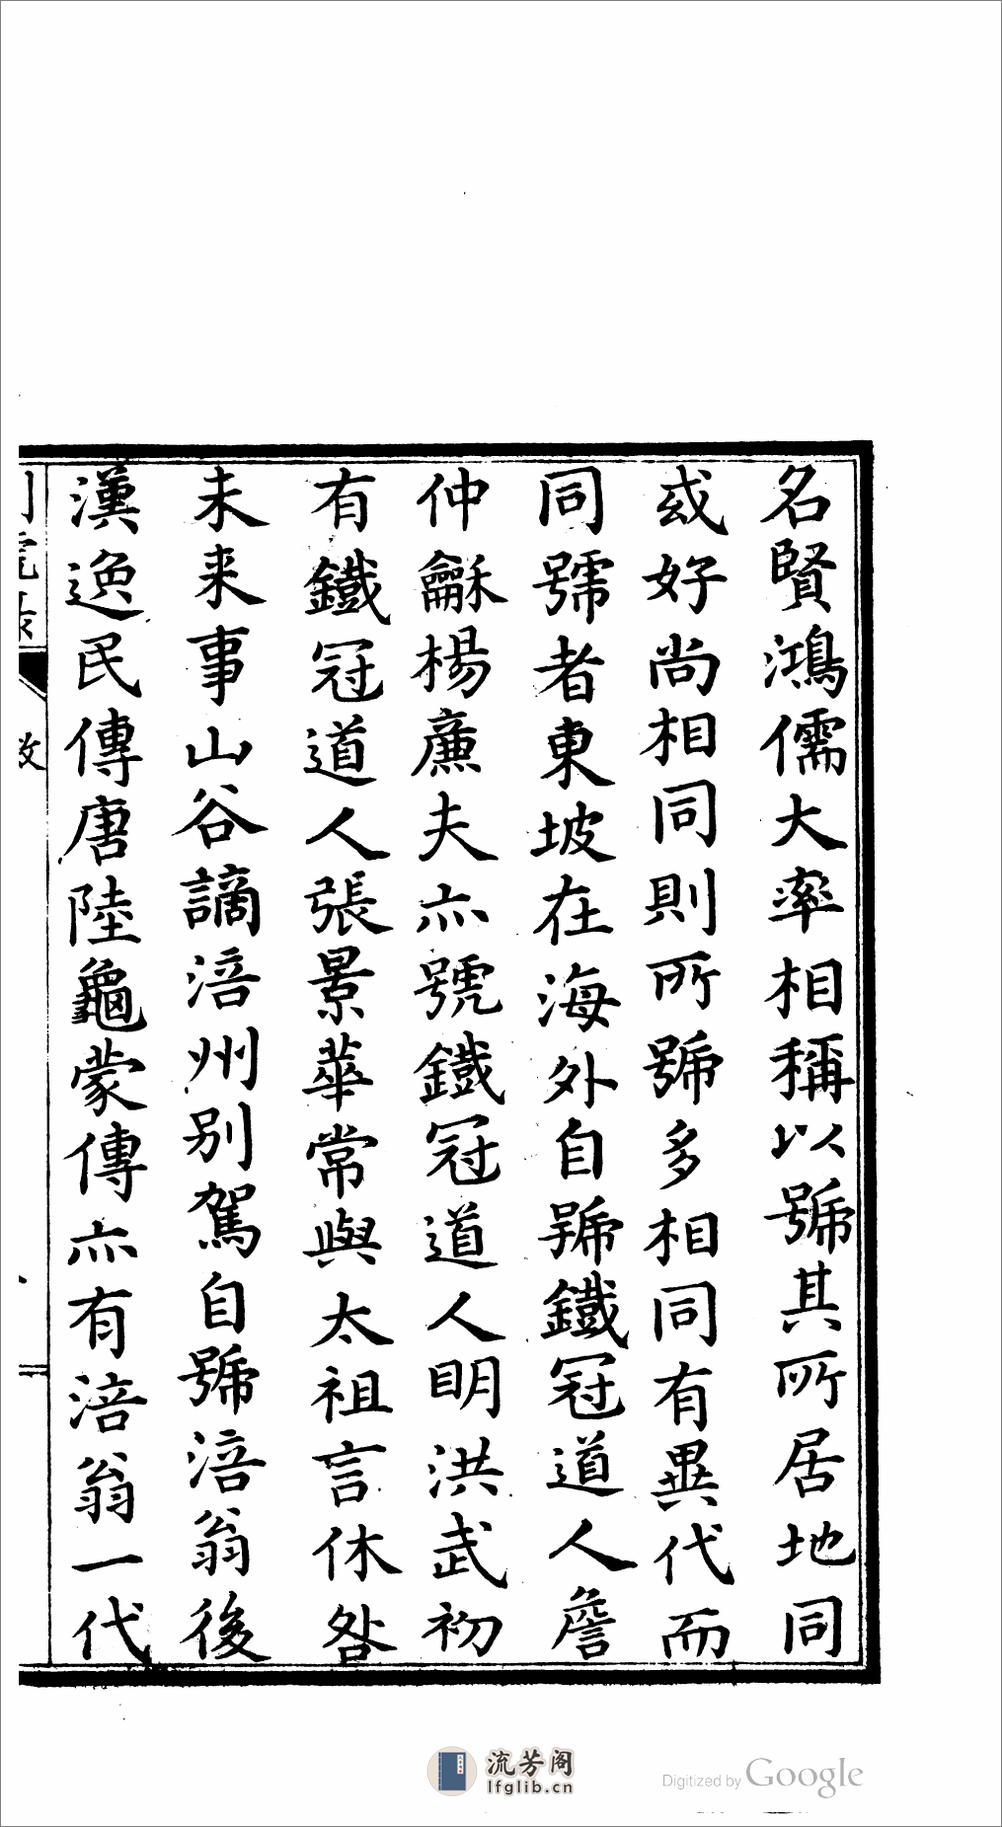 名賢鴻儒大率相稱以號其所居地同
或好尚相同則所號多相同有異代而
同號者東坡在海外自號鐵冠道人詹
仲龢楊廉夫亦號鐵冠道人明洪武初
有鐵冠道人張景華常與太祖言休咎
未来事山谷謫涪州別駕自號涪翁後
漢逸民傳唐陸龜蒙傳亦有涪翁一代
流芳阁
lfglib.cn
Digitized by Google